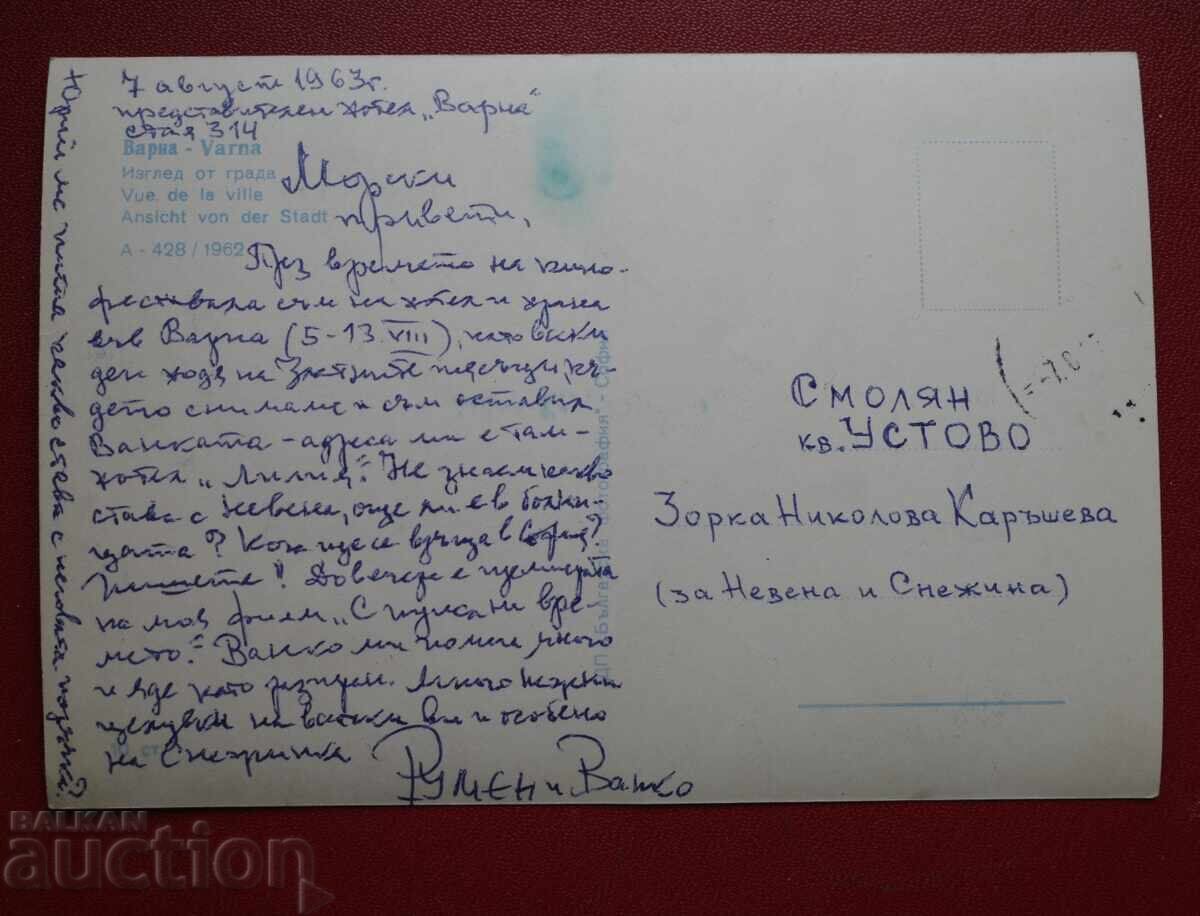 7 август 1963г.
представителен хотел „Варна“
стая 314
Варна - Varna
Изглед от града
Vue de la ville
Ansicht von der Stadt
А - 428 / 1962
Морски
привети,
През времето на кино-
фестивала съм на хотел и храна
във Варна (5-13 VIII), като всеки
ден ходя на Златните пясъци, къ-
дето снимаме и съм оставил
Ванката - адреса ми е там-
хотел „Лилия“. Не знаем какво
става с Невена, още ли е в болни-
цата? Кога ще се връща в София?
Пишете! Довечера е премиерата
на моя филм „Спускани
мето“. Ванко ми помага много
и яде като разпран. Много нежни
целувки на всички ви и особено
на Снежинка
РУМЕН и Ванко
Юрий ме пита какво става с неговата
ДП „Българска фотография“ - София
СМОЛЯН
кв. УСТОВО
Зорка Николова Каръшева
(за Невена и Снежина)
BALKAN
auction